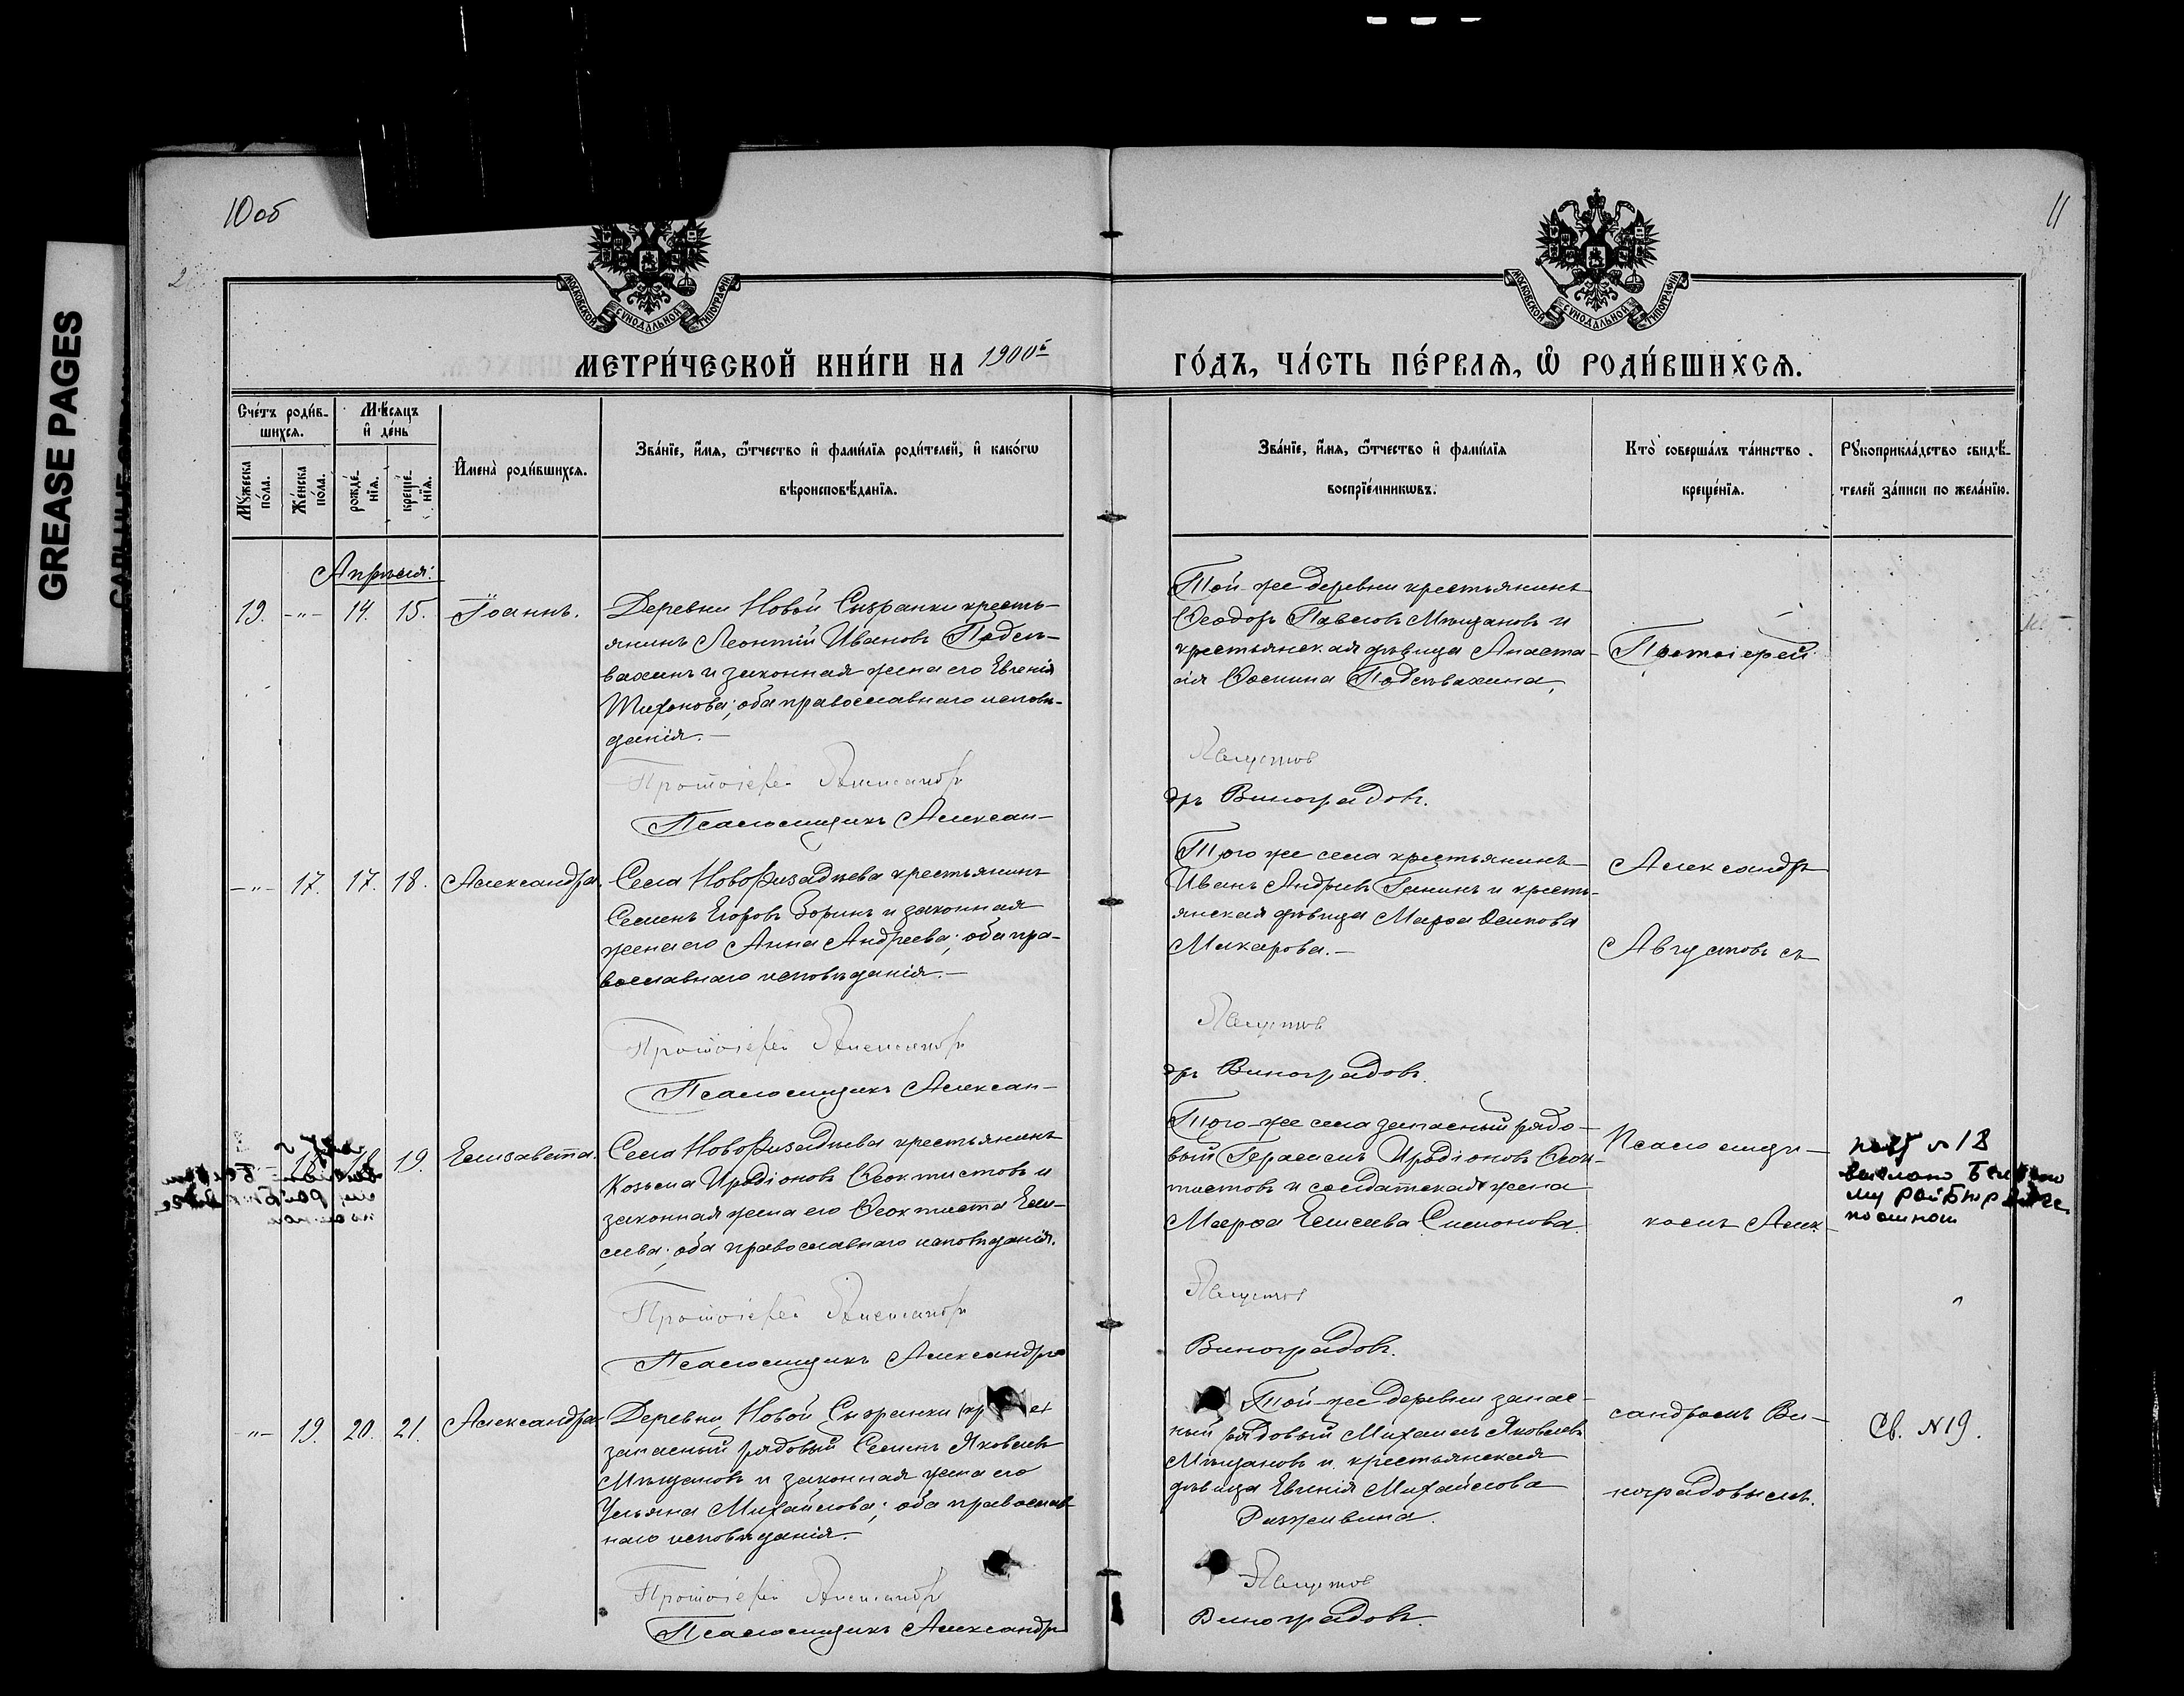 GREASE PAGES
10 об
11
МОСКОВСКОЙ СѴНОДАЛЬНОЙ ТИПОГРАФІИ
МОСКОВСКОЙ СѴНОДАЛЬНОЙ ТИПОГРАФІИ
МЕТРИ́ЧЕСКОЙ КНИ́ГИ НА 1900й
ГО́ДЪ, ЧА́СТЬ ПЕ́РВАѦ, Ѡ РОДИ́ВШИХСѦ.
Сче́тъ роди́в-
шихсѧ.
Мꙋжеска по́ла.
Же́нска по́ла.
Мѣ́сяцъ
и де́нь
рожде́-
нїѧ.
креще́-
нїѧ.
Имена̀ роди́вшихсѧ.
Зва́нїе, и́мѧ, ѻ́тчество и фами́лїѧ роди́телей, и како́гѡ
вѣроисповѣ́данїѧ.
Зва́нїе, и́мѧ, ѻ́тчество и фами́лїѧ
воспрїе́мникѡвъ.
Кто̀ соверша́лъ та́инство
креще́нїѧ.
Рꙋкоприкла́дство свидѣ́-
телей за́писи по жела́нїю.
Апрѣля:
19. -"- 14. 15. Іоаннъ.
Деревни Новой Сызранки кресть-
янинъ Леонтій Ивановъ Подсѣ-
вахинъ и законная жена его Евгенія
Тихонова; оба православнаго исповѣ-
данія.-
Протоіерей Александръ
Псаломщикъ Алексан-
Той-же деревни крестьянинъ
Ѳеодоръ Павловъ Мѣщановъ и
крестьянская дѣвица Анаста-
сія Подсѣвахина.
Августовъ
дръ Виноградовъ.
Протоіерей
-"- 17. 17. 18. Александра.
Села Новофизадѣева крестьянинъ
Семенъ Егоровъ Зоринъ и законная
жена его Анна Андреева; оба пра-
вославнаго исповѣданія.-
Протоіерей Александръ
Псаломщикъ Алексан-
Того же села крестьянинъ
Иванъ Андреевъ Ганинъ и кресть-
янская дѣвица Марѳа Осипова
Макарова.-
Августовъ
дръ Виноградовъ.
Александръ
Августовъ съ
19. Елизавета.
Села Новофизадѣева крестьянинъ
Козьма Иродіоновъ Ѳеоктистовъ и
законная жена его Ѳеоктиста Ели-
сѣева; оба православнаго исповѣданія.
Протоіерей Александръ
Псаломщикъ Александръ
Того-же села запасный рядо-
вый Герасимъ Иродіоновъ Ѳеок-
тистовъ и солдатская жена
Марѳа Елисеева Симонова.
Августовъ
Виноградовъ.
Псаломщи-
комъ Алек-
№ 18
-"- 19. 20. 21. Александра.
Деревни Новой Сызранки
запасный рядовый Семенъ Яковлевъ
Мѣщановъ и законная жена его
Ульяна Михайлова; оба православ-
наго исповѣданія.-
Протоіерей Александръ
Псаломщикъ Александръ
Той-же деревни запас-
ный рядовый Михаилъ Яковлевъ
Мѣщановъ и крестьянская
дѣвица Евгенія Михайлова
Разживина.
Августовъ
Виноградовъ.
сандромъ Ви-
ноградовымъ.
Св. N 19.